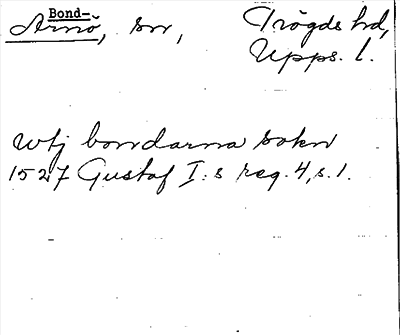 Bond-
Arnö, sn, Trögds hd,
Upps. l.
wtj bondarna sokn
1527 Gustaf I:s reg. 4, s. 1.